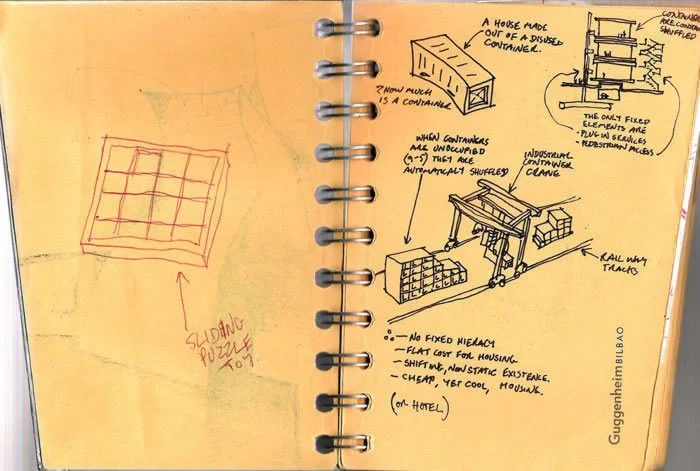 SLIDING
PUZZLE
TOY
A HOUSE MADE
OUT OF A DISUSED
CONTAINER.
? HOW MUCH
IS A CONTAINER
CONTAINERS
ARE CONSTANTLY
SHUFFLED
THE ONLY FIXED
ELEMENTS ARE
- PLUG IN SERVICES
- PEDESTRIAN ACCESS
WHEN CONTAINERS
ARE UNOCCUPIED
(9-5) THEY ARE
AUTOMATICALY SHUFFLED
INDUSTRIAL
CONTAINER
CRANE
RAILWAY
TRACKS
∴ — NO FIXED HIERACY
— FLAT COST FOR HOUSING
— SHIFTING, NON STATIC EXISTENCE.
— CHEAP, YET COOL, HOUSING.
(OR HOTEL)
Guggenheim BILBAO